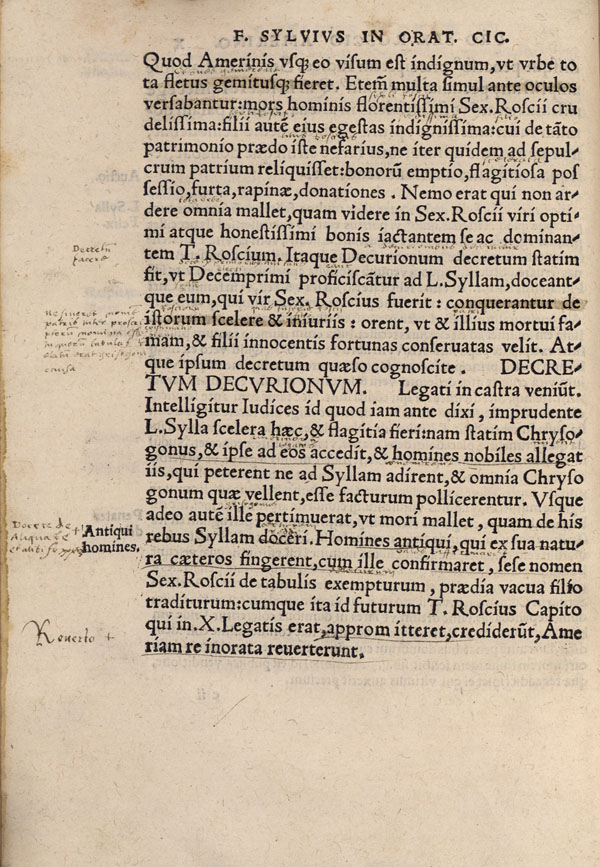 F. SYLVIUS IN ORAT. CIC.
Quod Amerinis vsq; eo visum est indignum, vt vrbe to
ta fletus gemitusq; fieret. Etem̄ multa simul ante oculos
versabantur: mors hominis florentissimi Sex. Roscii cru
delissima: filii autē eius egestas indignissima: cui de tāto
patrimonio prædo iste nefarius, ne iter quidem ad sepul-
crum patrium reliquisset: bonorū emptio, flagitiosa pos
sessio, furta, rapinæ, donationes. Nemo erat qui non ar-
dere omnia mallet, quam videre in Sex. Roscii viri opti-
mi atque honestissimi bonis iactantem se ac dominan-
tem T. Roscium. Itaque Decurionum decretum statim
fit, vt Decemprimi proficiscātur ad L. Syllam, doceant-
que eum, qui vir Sex. Roscius fuerit: conquerantur de
istorum scelere & iniuriis: orent, vt & illius mortui fa-
mam, & filii innocentis fortunas conseruatas velit. At-
que ipsum decretum quæso cognoscite. DECRE-
TVM DECVRIONVM. Legati in castra veniūt.
Intelligitur Iudices id quod iam ante dixi, imprudente
L. Sylla scelera hæc, & flagitia fieri: nam statim Chryso-
gonus, & ipse ad eos accedit, & homines nobiles allegat
iis, qui peterent ne ad Syllam adirent, & omnia Chryso
gonum quæ vellent, esse facturum pollicerentur. Vsque
adeo autē ille pertimuerat, vt mori mallet, quam de his
rebus Syllam doceri. Homines antiqui, qui ex sua natu-
ra cæteros fingerent, cum ille confirmaret, sese nomen
Sex. Roscii de tabulis exempturum, prædia vacua filio
traditurum: cumque ita id futurum T. Roscius Capito
qui in. X. Legatis erat, approm itteret, crediderūt, Ame
riam re inorata reuerterunt.
Antiqui
homines.
Reuerto +